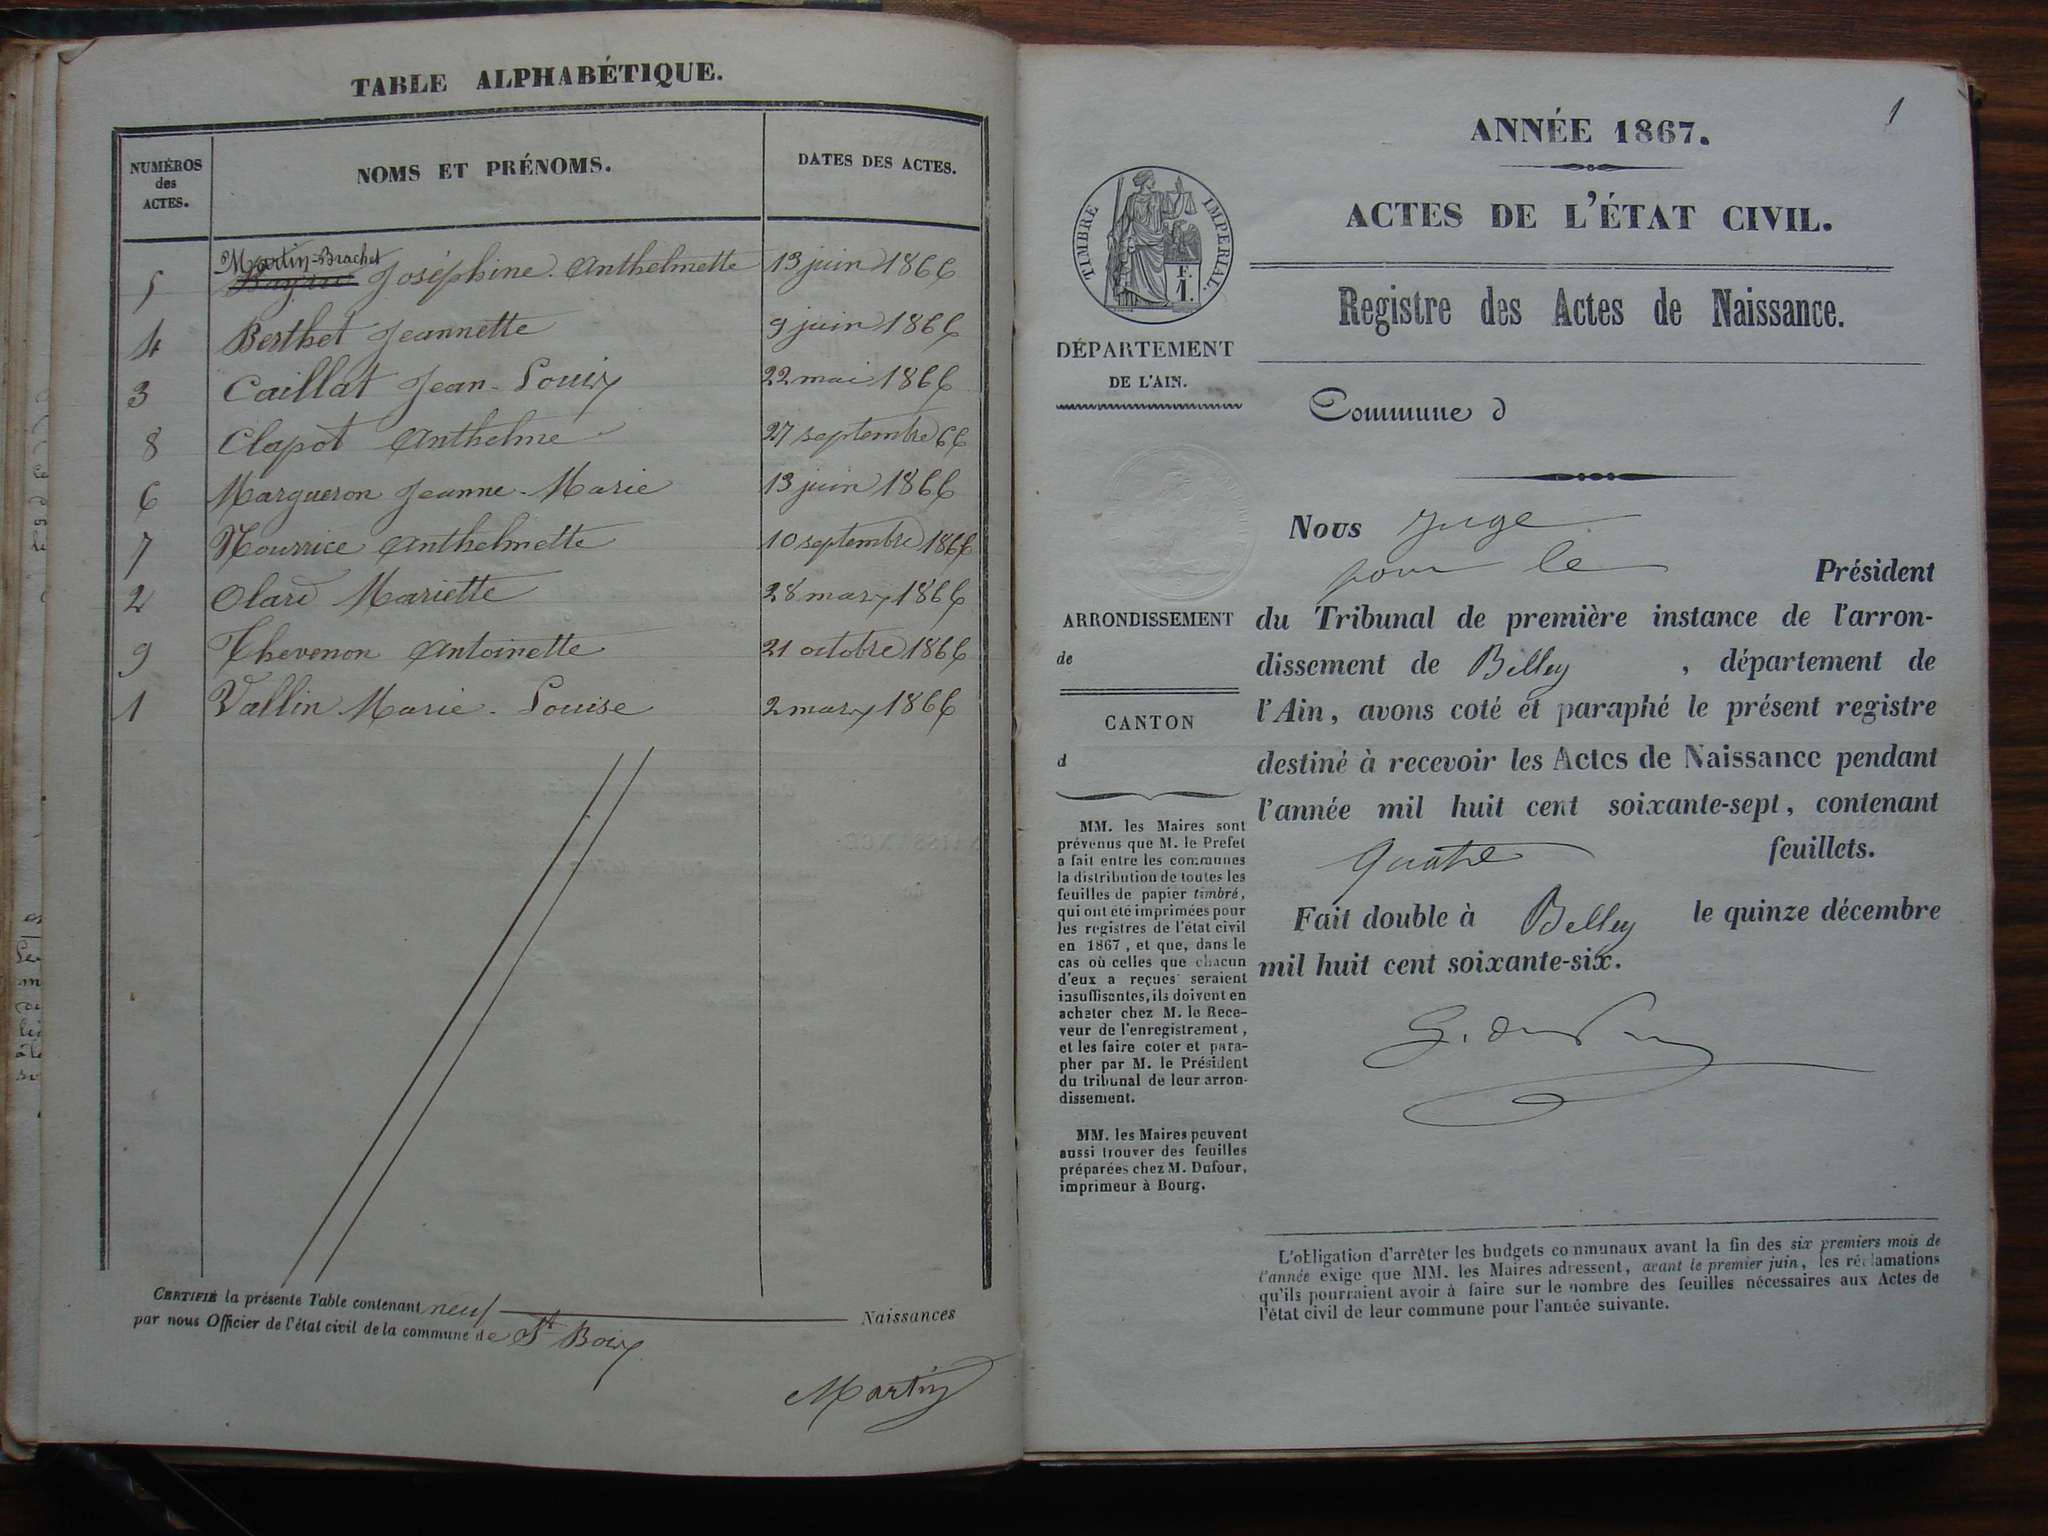 TABLE ALPHABÉTIQUE.
NUMÉROS des ACTES.
NOMS ET PRÉNOMS.
DATES DES ACTES.
Martin-Brachet
5 Joséphine Anthelmette 13 juin 1866
4 Berthet Jeannette 9 juin 1866
3 Caillat Jean-Louis 22 mai 1866
8 Clapot Anthelme 27 septembre 66
6 Margueron Jeanne-Marie 13 juin 1866
7 Nourrice Anthelmette 10 septembre 1866
2 Olard Mariette 28 mars 1866
9 Thevenon Antoinette 21 octobre 1866
1 Vallin Marie-Louise 2 mars 1866
CERTIFIÉ la présente Table contenant neuf Naissances
par nous Officier de l'état civil de la commune de St Bois
Martin
1
ANNÉE 1867.
ACTES DE L'ÉTAT CIVIL.
Registre des Actes de Naissance.
TIMBRE IMPERIAL.
F.
1.
DÉPARTEMENT
DE L'AIN.
Commune d
Nous Juge
pour le Président
du Tribunal de première instance de l'arron-
dissement de Belley, département de
l'Ain, avons coté et paraphé le présent registre
destiné à recevoir les Actes de Naissance pendant
l'année mil huit cent soixante-sept, contenant
quatre feuillets.
Fait double à Belley le quinze décembre
mil huit cent soixante-six.
ARRONDISSEMENT
de
CANTON
d
MM. les Maires sont
prévenus que M. le Prefet
a fait entre les communes
la distribution de toutes les
feuilles de papier timbré,
qui ont été imprimées pour
les registres de l'état civil
en 1867, et que, dans le
cas où celles que chacun
d'eux a reçues seraient
insuffisantes, ils doivent en
acheter chez M. le Rece-
veur de l'enregistrement,
et les faire coter et para-
pher par M. le Président
du tribunal de leur arron-
dissement.
MM. les Maires peuvent
aussi trouver des feuilles
préparées chez M. Dufour,
imprimeur à Bourg.
L'obligation d'arrêter les budgets communaux avant la fin des six premiers mois de
l'année exige que MM. les Maires adressent, avant le premier juin, les réclamations
qu'ils pourraient avoir à faire sur le nombre des feuilles nécessaires aux Actes de
l'état civil de leur commune pour l'année suivante.